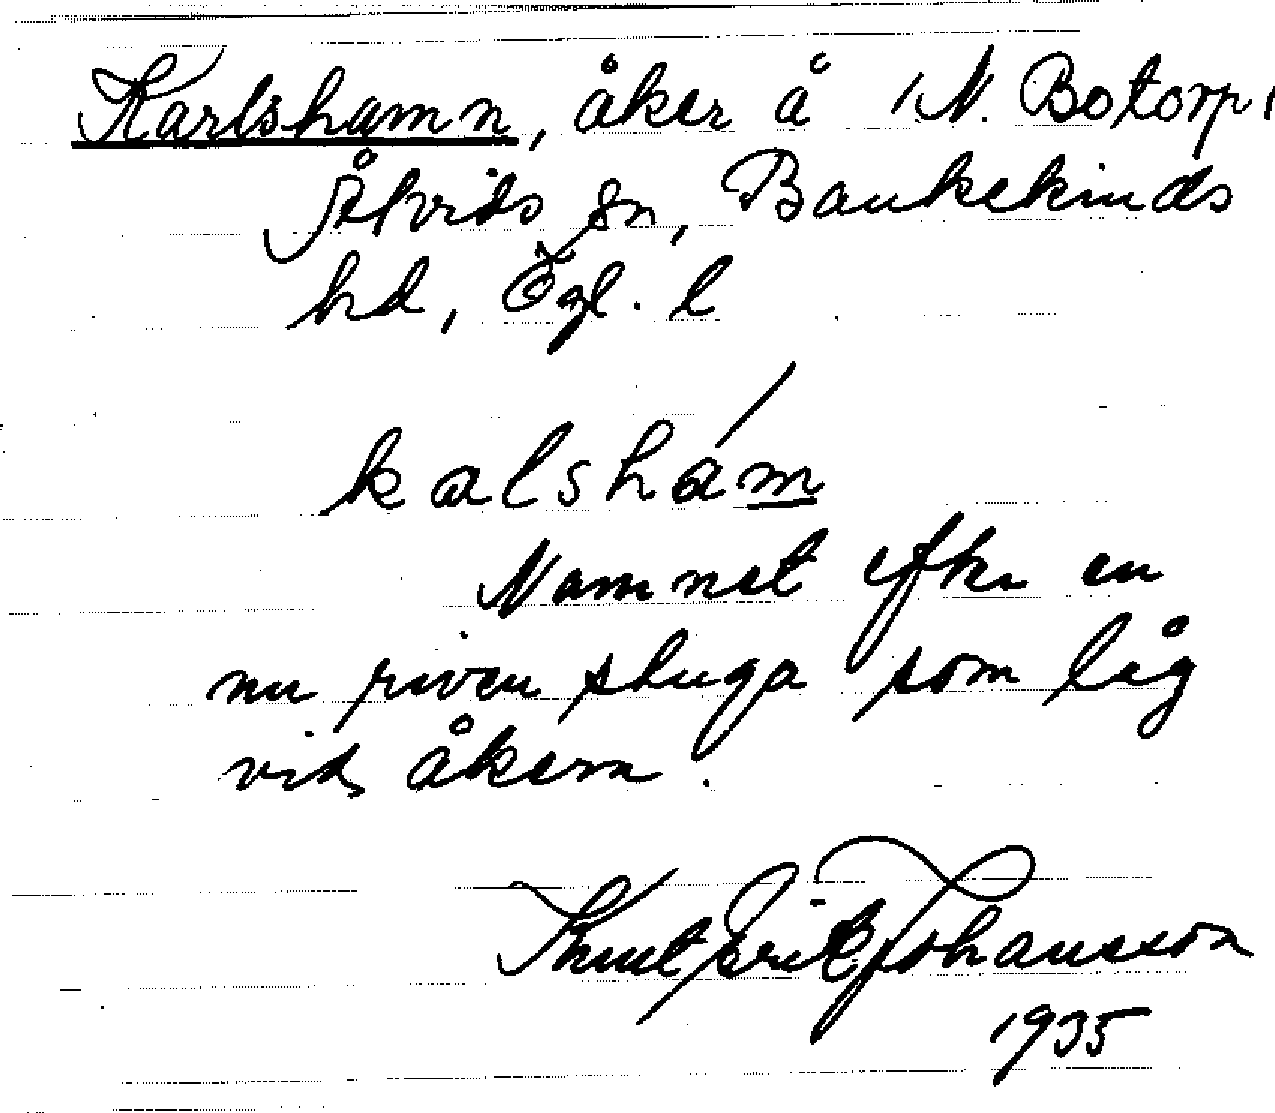 Karlshamn, åker å N. Botorp,
Åtvids sn, Bankekinds
hd, Ögl. l
kalshám
Namnet efter en
nu riven stuga som låg
vid åkern.
Knut Erik Johansson
1935